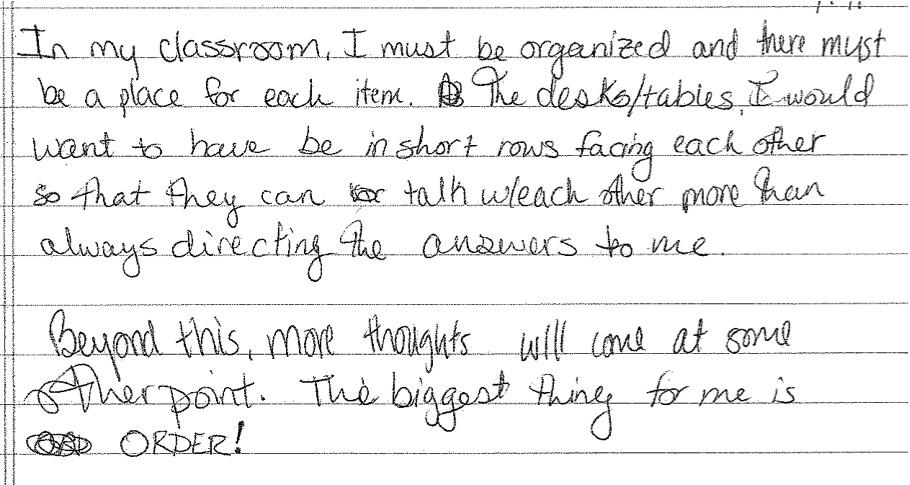 In my classroom, I must be organized and there must
be a place for each item. The desks/tables, I would
want to have be in short rows facing each other
so that they can talk w/each other more than
always directing the answers to me.
Beyond this, more thoughts will come at some
other point. The biggest thing for me is
ORDER!